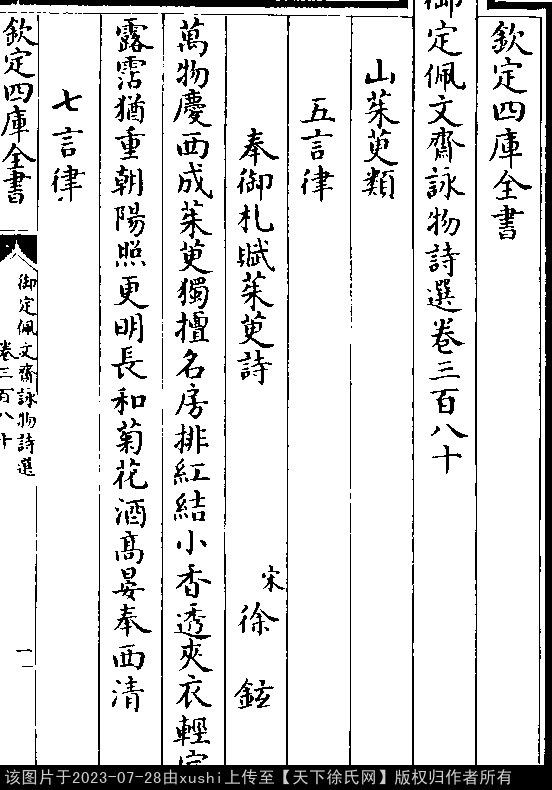 欽定四庫全書
御定佩文齋詠物詩選卷三百八十
山茱萸類
五言律
奉御札賦茱萸詩 宋 徐鉉
萬物慶西成茱萸獨擅名房排紅結小香透夾衣輕宿
露霑猶重朝陽照更明長和菊花酒髙晏奉西清
七言律
欽定四庫全書
御定佩文齋詠物詩選
卷三百八十
一
该图片于2023-07-28由xushi上传至【天下徐氏网】版权归作者所有